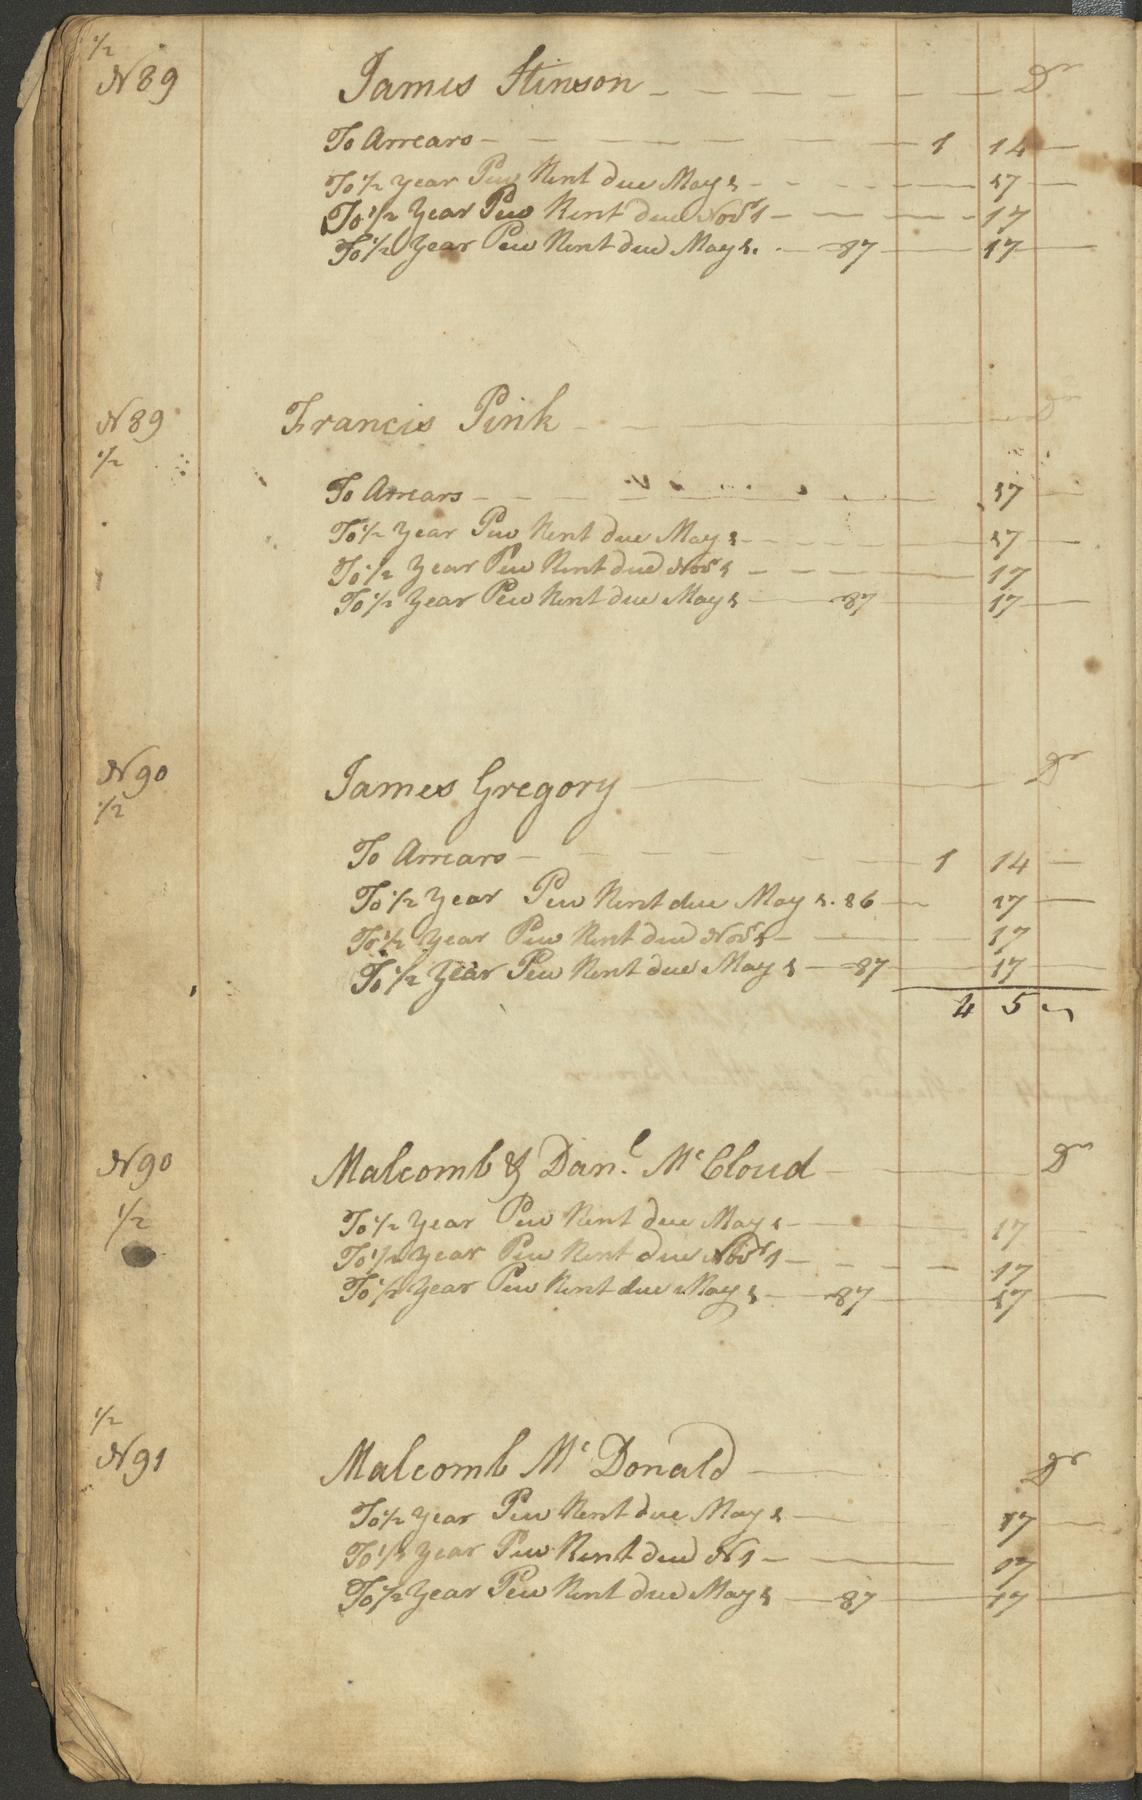 1/2
N 89 James Stinson Dr
To Arrears 1 14
To 1/2 Year Pew Rent due May 1 17
To 1/2 Year Pew Rent due Novr 1 17
To 1/2 Year Pew Rent due May 1. 87 17
N 89 Francis Pink Dr
1/2
To Arrears 17
To 1/2 Year Pew Rent due May 1 17
To 1/2 Year Pew Rent due Novr 1 17
To 1/2 Year Pew Rent due May 1 87 17
N 90 James Gregory Dr
1/2
To Arrears 1 14
To 1/2 Year Pew Rent due May 1. 86 17
To 1/2 Year Pew Rent due Novr 1 17
To 1/2 Year Pew Rent due May 1 87 17
4 5
N 90 Malcomb & Danl. McCloud Dr
1/2 To 1/2 Year Pew Rent due May 1 17
To 1/2 Year Pew Rent due Novr 1 17
To 1/2 Year Pew Rent due May 1 87 17
1/2
N 91 Malcomb McDonald Dr
To 1/2 Year Pew Rent due May 1 17
To 1/2 Year Pew Rent due N 1 17
To 1/2 Year Pew Rent due May 1 87 17